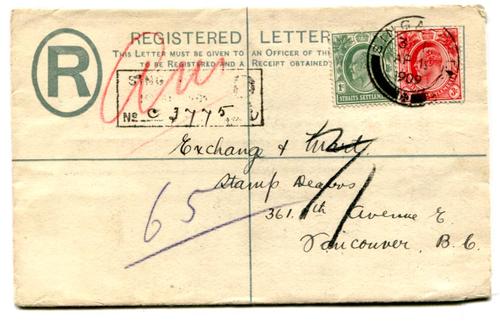 REGISTERED LETTER
THIS LETTER MUST BE GIVEN TO AN OFFICER OF THE
BE REGISTERED AND A RECEIPT OBTAINED
R
SINGA
AP
1909
1c
STRAITS SETTLEMENTS
SING
No C 3775
Exchange &
Stamp Dealers
361. 7th Avenue E.
Vancouver, B.C.
65